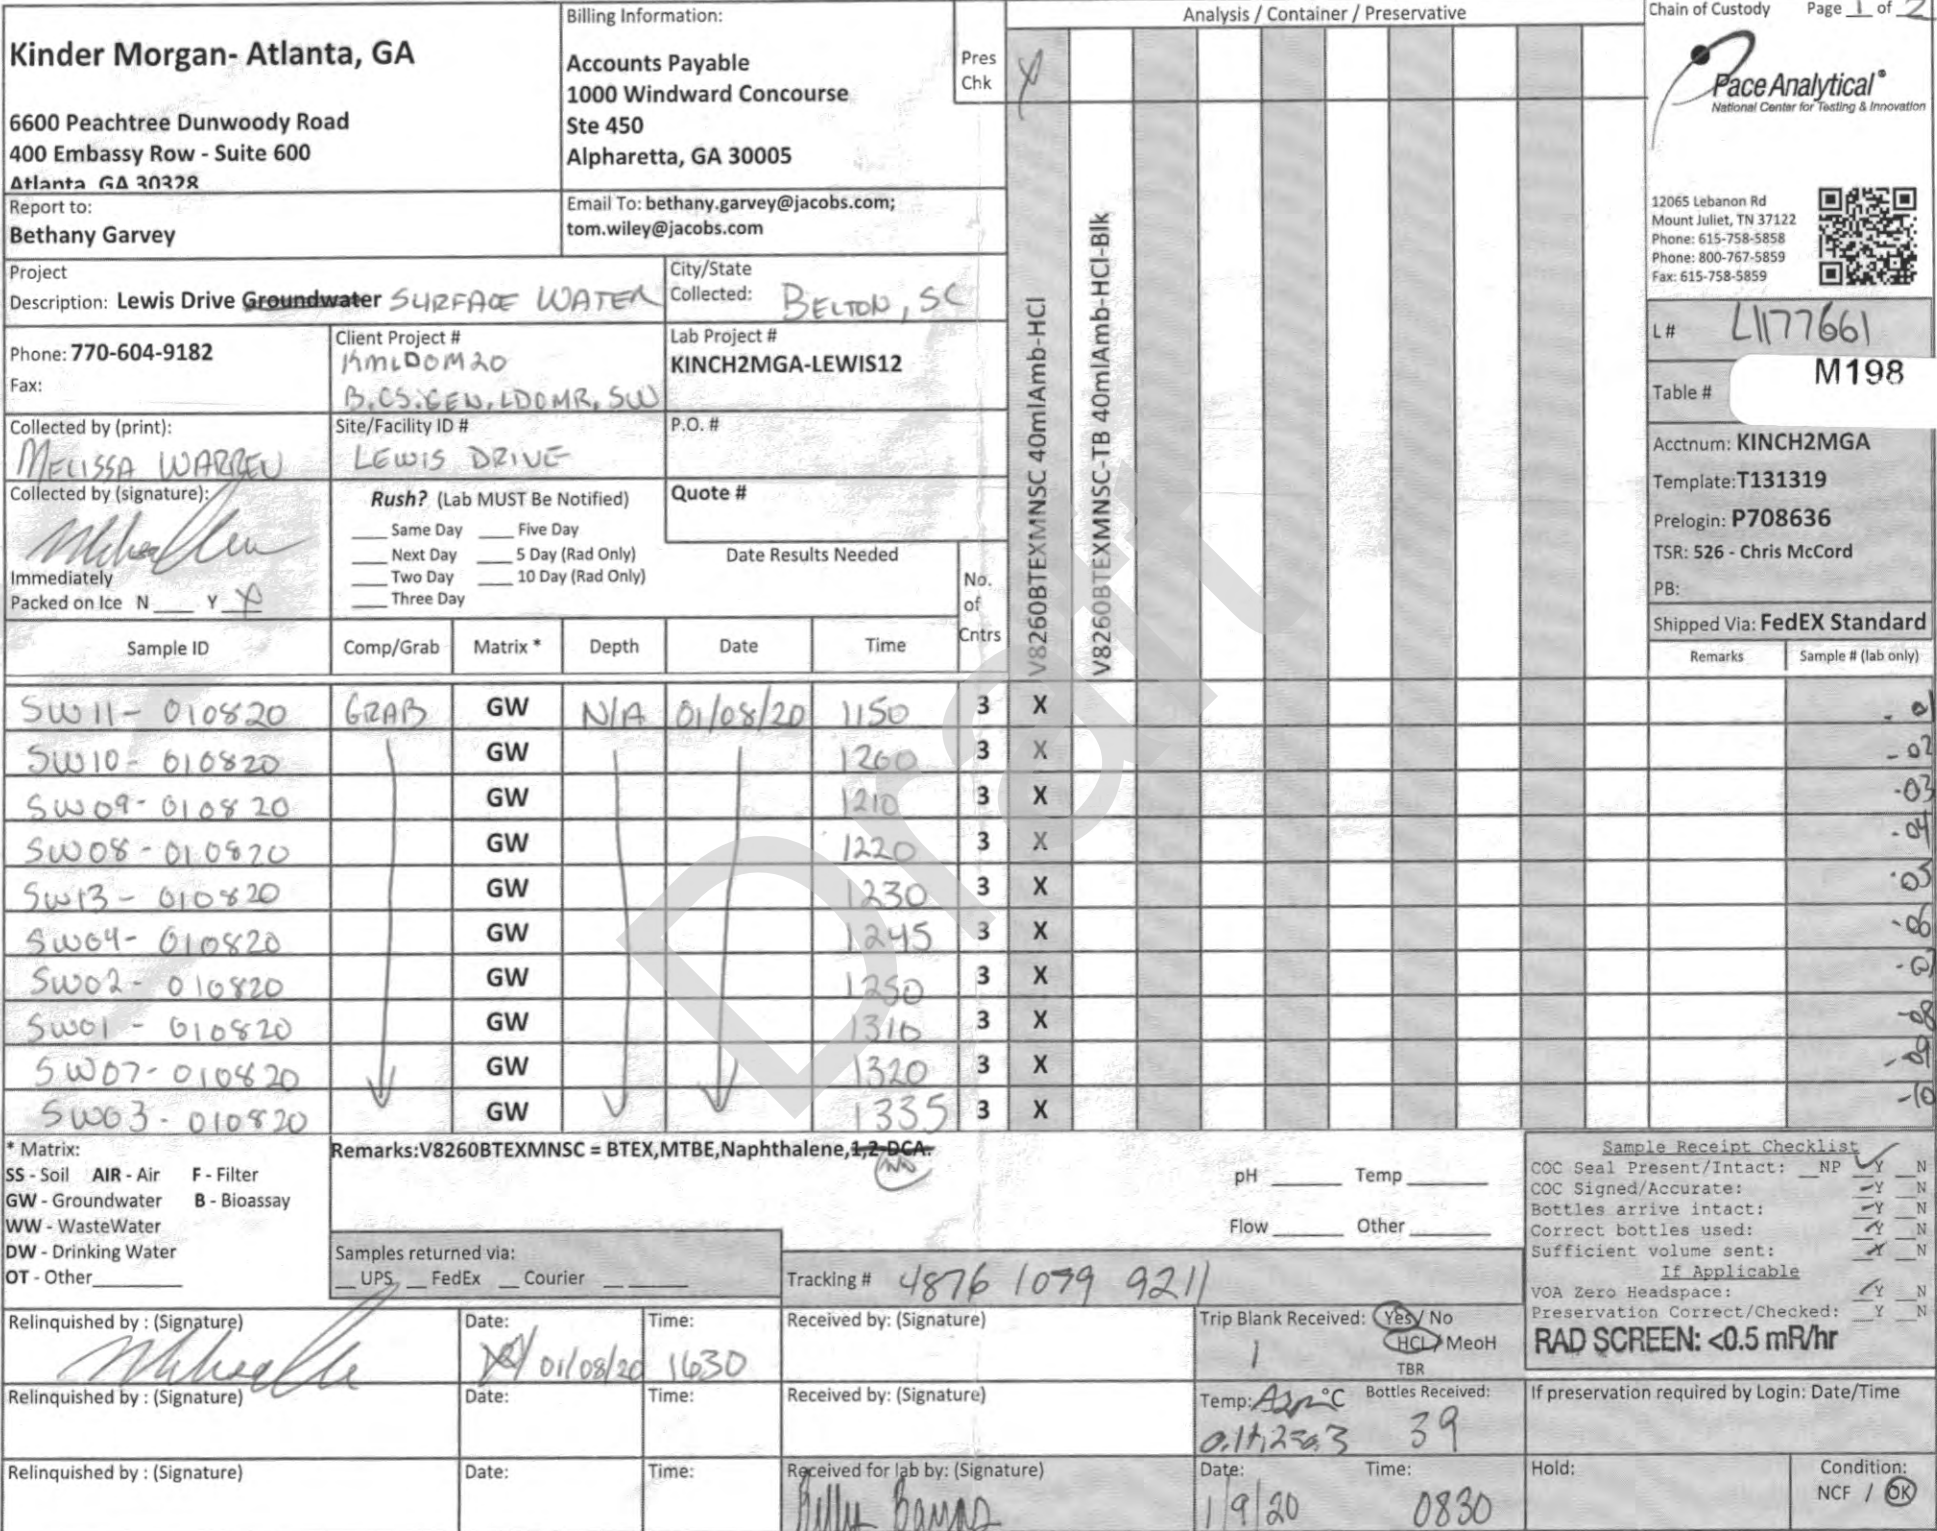 Kinder Morgan- Atlanta, GA
6600 Peachtree Dunwoody Road
400 Embassy Row - Suite 600
Atlanta GA 30328
Billing Information:
Accounts Payable
1000 Windward Concourse
Ste 450
Alpharetta, GA 30005
Pres
Chk
Analysis / Container / Preservative
Chain of Custody Page 1 of 2
Pace Analytical®
National Center for Testing & Innovation
12065 Lebanon Rd
Mount Juliet, TN 37122
Phone: 615-758-5858
Phone: 800-767-5859
Fax: 615-758-5859
Report to:
Bethany Garvey
Email To: bethany.garvey@jacobs.com;
tom.wiley@jacobs.com
Project
Description: Lewis Drive Groundwater SURFACE WATER
City/State
Collected: BELTON, SC
Phone: 770-604-9182
Fax:
Client Project #
KMLDOM20
B.CS.GEN.LDOMR.SW
Lab Project #
KINCH2MGA-LEWIS12
Collected by (print):
MELISSA WARREN
Site/Facility ID #
LEWIS DRIVE
P.O. #
Collected by (signature):
Rush? (Lab MUST Be Notified)
Same Day Five Day
Next Day 5 Day (Rad Only)
Two Day 10 Day (Rad Only)
Three Day
Quote #
Date Results Needed
Immediately
Packed on Ice N Y X
No.
of
Cntrs
V8260BTEXMNSC 40mlAmb-HCl
V8260BTEXMNSC-TB 40mlAmb-HCl-Blk
L# L1177661
Table # M198
Acctnum: KINCH2MGA
Template:T131319
Prelogin: P708636
TSR: 526 - Chris McCord
PB:
Shipped Via: FedEX Standard
Sample ID Comp/Grab Matrix * Depth Date Time Remarks Sample # (lab only)
SW11-010820 GRAB GW N/A 01/08/20 1150 3 X -01
SW10-010820 GW 1200 3 X -02
SW09-010820 GW 1210 3 X -03
SW08-010820 GW 1220 3 X -04
SW13-010820 GW 1230 3 X -05
SW04-010820 GW 1245 3 X -06
SW02-010820 GW 1250 3 X -07
SW01-010820 GW 1310 3 X -08
SW07-010820 GW 1320 3 X -09
SW03-010820 GW 1335 3 X -10
* Matrix:
SS - Soil AIR - Air F - Filter
GW - Groundwater B - Bioassay
WW - WasteWater
DW - Drinking Water
OT - Other
Remarks:V8260BTEXMNSC = BTEX,MTBE,Naphthalene,1,2-DCA.
pH Temp
Flow Other
Samples returned via:
UPS FedEx Courier
Tracking # 4876 1099 9211
Sample Receipt Checklist
COC Seal Present/Intact: NP Y N
COC Signed/Accurate: Y N
Bottles arrive intact: Y N
Correct bottles used: Y N
Sufficient volume sent: Y N
If Applicable
VOA Zero Headspace: Y N
Preservation Correct/Checked: Y N
RAD SCREEN: <0.5 mR/hr
Relinquished by : (Signature) Date: 01/08/20 Time: 1630 Received by: (Signature)
Trip Blank Received: Yes / No
1
HCL / MeoH
TBR
Relinquished by : (Signature) Date: Time: Received by: (Signature)
Temp: °C Bottles Received:
39
If preservation required by Login: Date/Time
Relinquished by : (Signature) Date: Time: Received for lab by: (Signature)
Date: 1/9/20 Time: 0830
Hold:
Condition:
NCF / OK
Draft